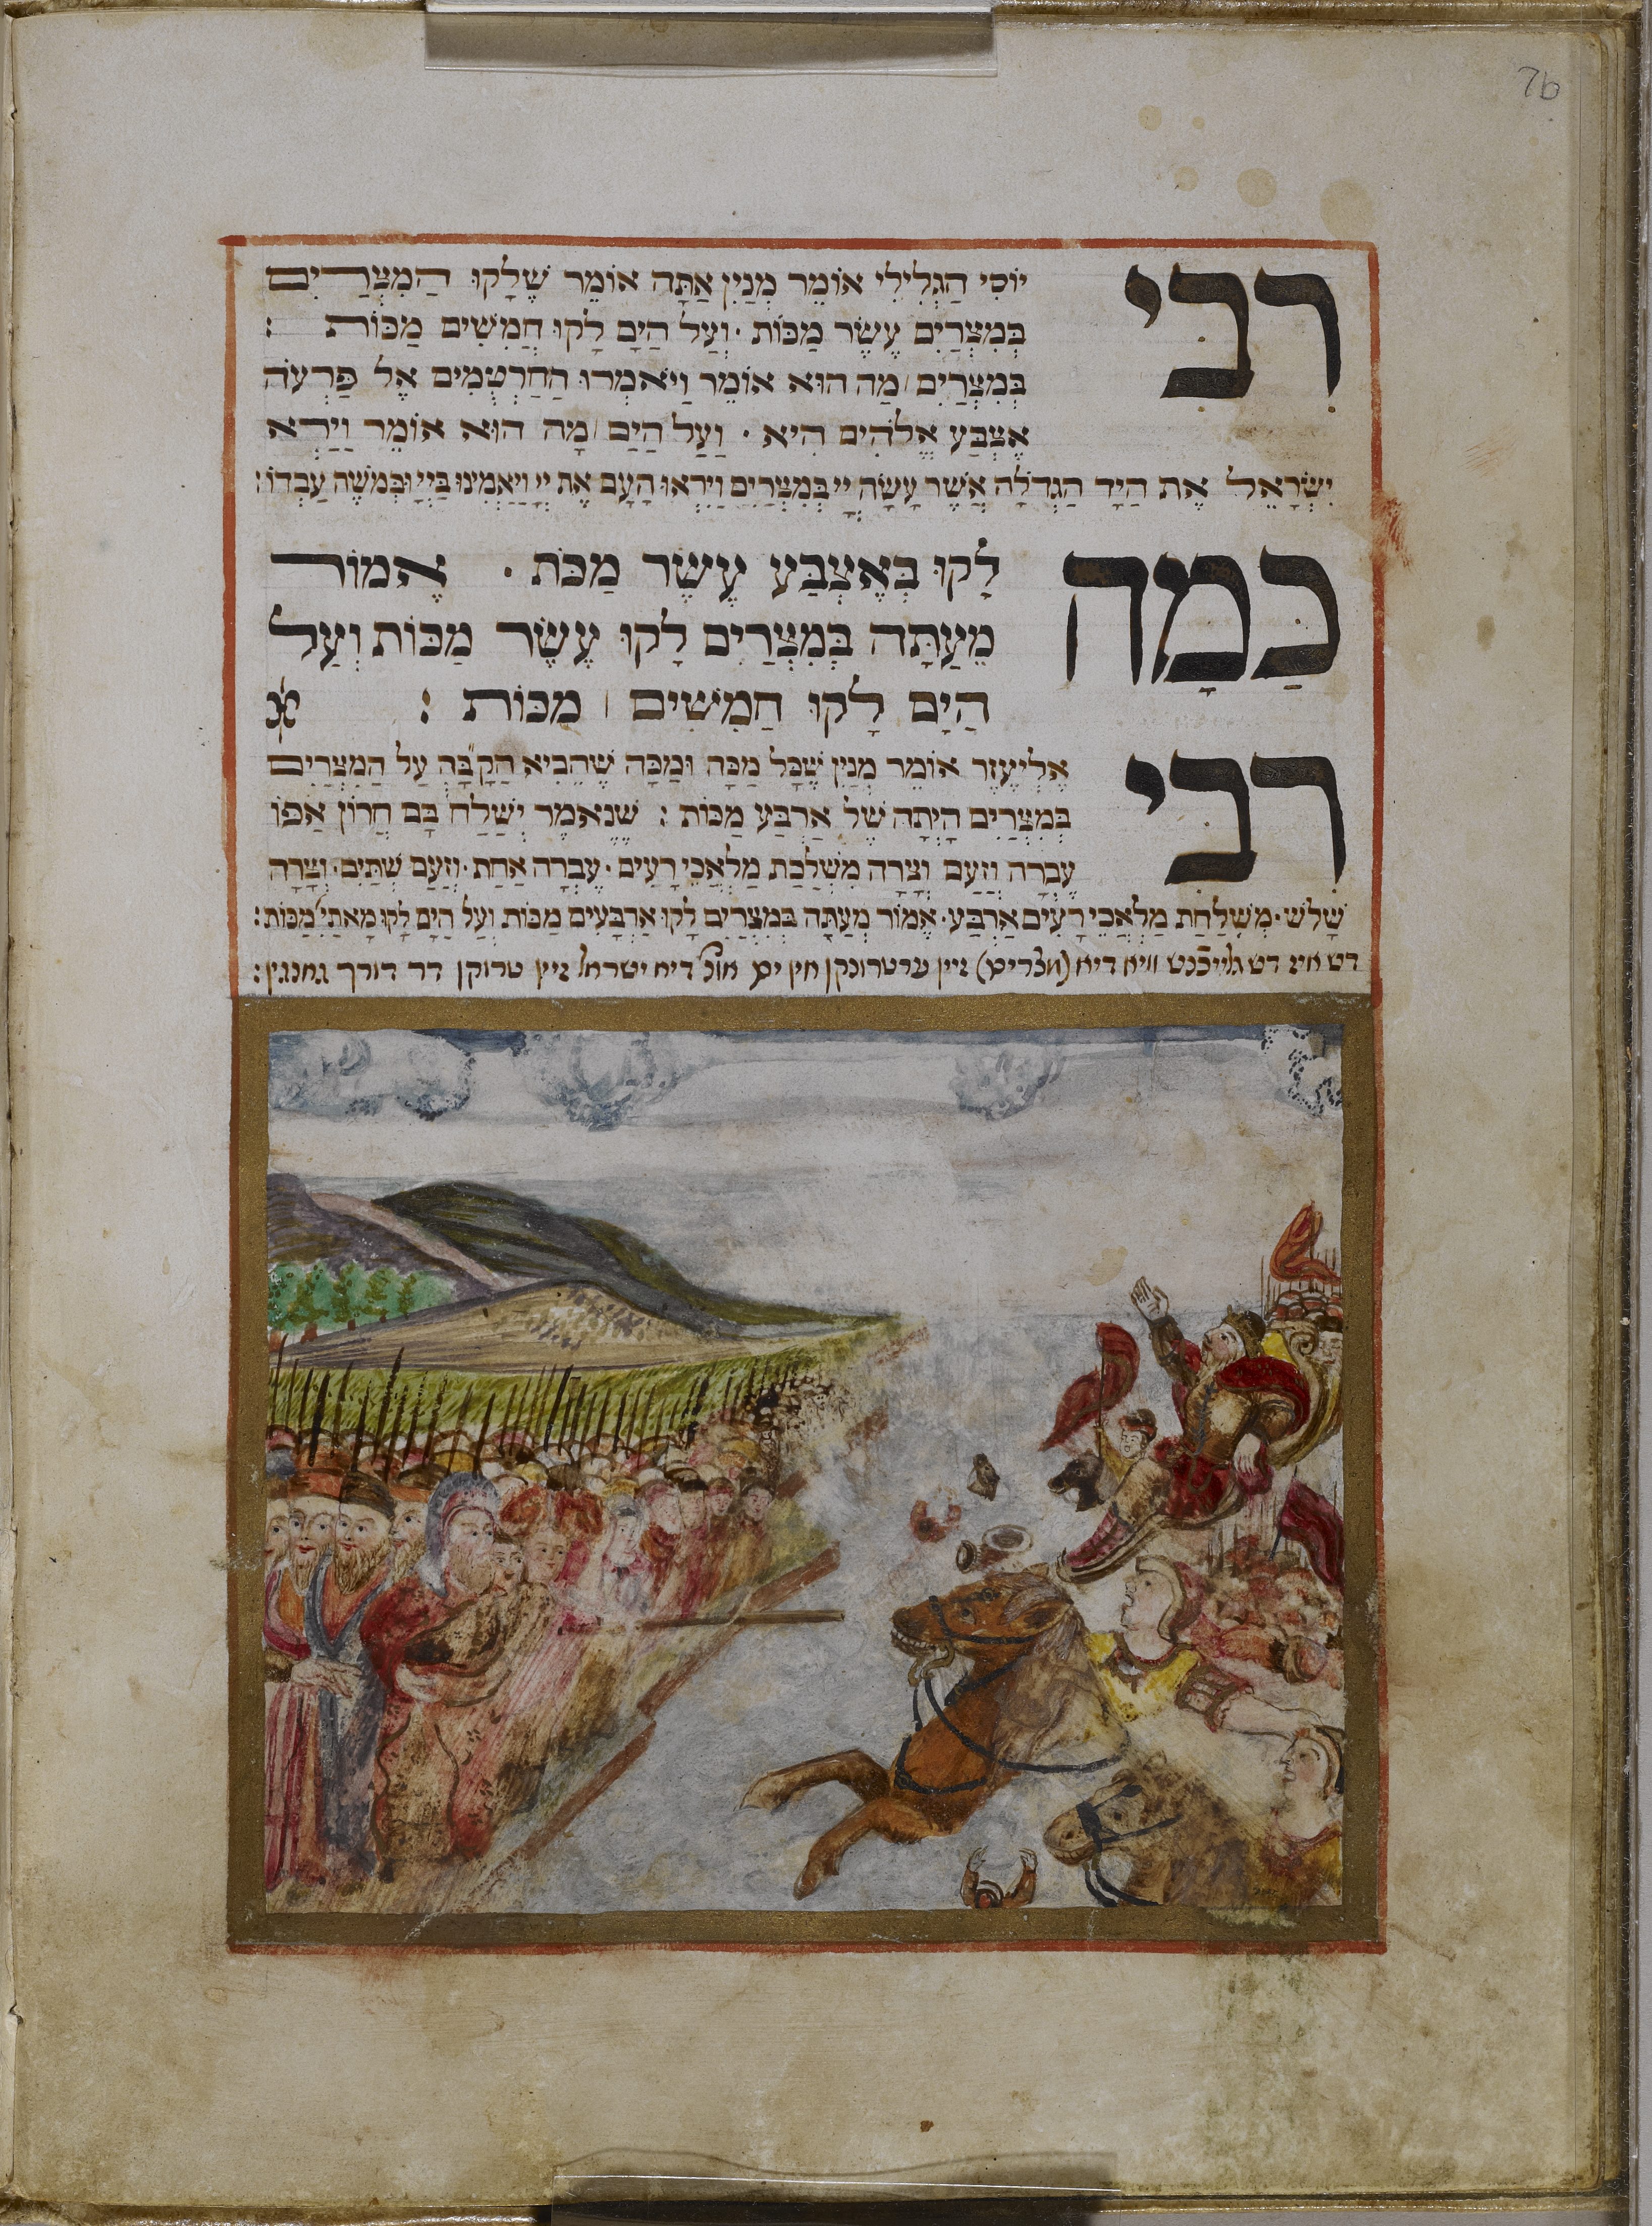 7b
רבי
יוֹסֵי הַגְּלִילִי אוֹמֵר מְנַיִן אַתָּה אוֹמֵר שֶׁלָקוּ הַמִצְרַיִם
בְּמִצְרַיִם עֶשֶׂר מַכּוֹת · וְעַל הַיָם לָקוּ חֲמִשִׁים מַכּוֹת :
בְּמִצְרַיִם / מַה הוּא אוֹמֵר וַיֹאמְרוּ הַחַרְטְמִים אֶל פַּרְעֹה
אֶצְבַּע אֱלֹהִים הִיא · וְעַל הַיָם / מָה הוּא אוֹמֵר וַיַרְא
יִשְׂרָאֵל אֶת הַיָד הַגְדֹלָה אֲשֶׁר עָשָׂה יְיָ בְּמִצְרַיִם וַיִרְאוּ הָעָם אֶת יְיָ וַיַאֲמִינוּ בַּיְיָ וּבְמֹשֶׁה עַבְדוֹ :
כַּמָה
לָקוּ בְּאֶצְבַּע עֶשֶׂר מַכֹּת · אֱמוֹר
מֵעַתָּה בְּמִצְרַיִם לָקוּ עֶשֶׂר מַכּוֹת וְעַל
הַיָם לָקוּ חֲמִשִׁים / מַכּוֹת :
רִבִּי
אֱלִיעֶזֶר אוֹמֵר מְנַיִן שֶׁכָּל מַכָּה וּמַכָּה שֶׁהֵבִיא הַקָבָּ״ה עַל הַמִצְרַיִם
בְּמִצְרַיִם הָיְתָה שֶׁל אַרְבַּע מַכּוֹת : שֶׁנֶאֱמַר יְשַׁלַח בָּם חֲרוֹן אַפּוֹ
עֶבְרָה וָזַעַם וְצָרָה מִשְׁלַחַת מַלְאֲכֵי רָעִים · עֶבְרָה אַחַת · וָזַעַם שְׁתַּיִם · וְצָרָה
שָׁלשׁ · מִשְׁלַחַת מַלְאֲכֵי רָעִים אַרְבַּע · אֱמוֹר מֵעַתָּה בְּמִצְרַיִם לָקוּ אַרְבָּעִים מַכּוֹת וְעַל הַיָם לָקוּ מָאתַיִם מַכּוֹת :
דש איז דש וויא דיא (מצרים) זיין ערטרונקן אין ים אונ׳ דיא ישראל זיין טרוקן דר דורך גאנגין :